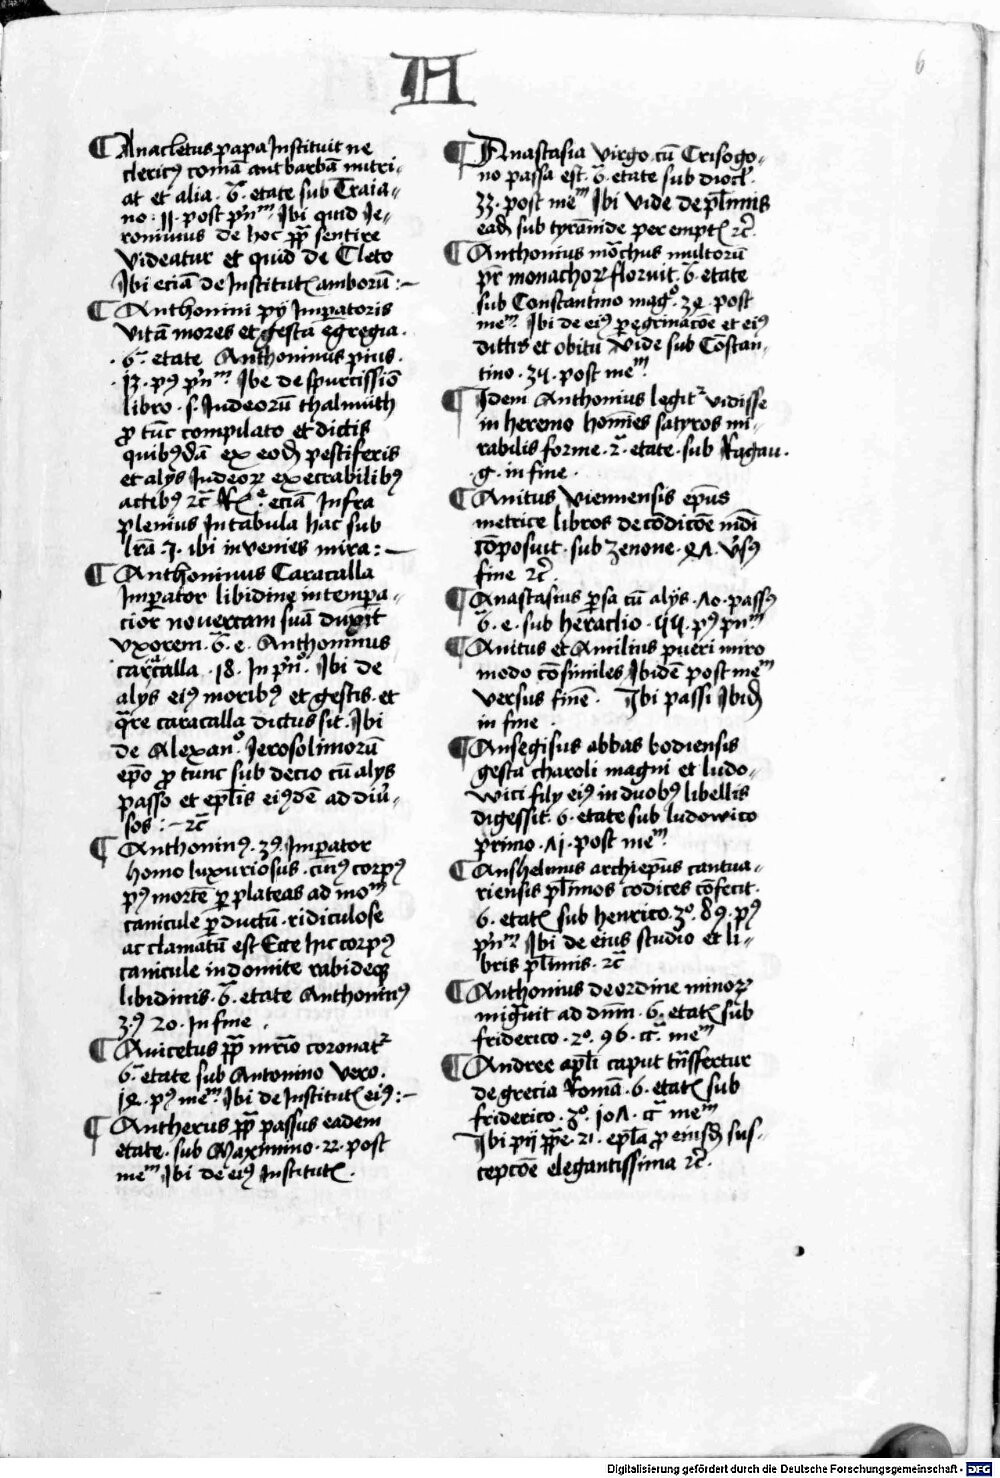 A
6
¶ Anacletus papa Instituit ne
clericꝰ comā aut barbā nutri-
at et alia · 6ᵃ · etate sub Traia-
no · 11 · post prīᵐ Ibi quid Je-
ronimus de hoc pp̄ sentire
videatur et quid de Cleto
Ibi eciā de Institutꝭ amborū :-
¶ Anthonini pij Imꝑatoris
vitā mores et gesta egregia ·
· 6ᵃ etate Anthoninus pius ·
· 13 · pꝰ prīᵐ Ibi de spurcissīo
libro · s · Judeorū thalmuth
ꝓ tūc compilato et dictis
quibꝰdā ex eod̄ pestiferis
et alijs Judeoꝝ execrabilibꝰ
actibꝰ ⁊c̄ eciā Infra
plenius In tabula hac sub
lrā · J · ibi invenies mira : -
¶ Anthoninus Caracalla
Imꝑator libidine intemꝑa-
cior novercam suā duxit
vxorem · 6ᵃ · e · Anthoninus
caracalla · 18 · In prīᵒ · Ibi de
alijs eiꝰ moribꝰ et gestis · et
q̄re caracalla dictus sit · Ibi
de Alexanᵒ · Jerosolimorū
ep̄o ꝓ tunc sub decio cū alijs
passo et ep̄lis eiꝰdē ad diũ-
sos : - ⁊c̄
¶ Anthoninꝰ · 3ꝰ · Imꝑator
homo luxuriosus · cuiꝰ corpꝰ
pꝰ mortē ꝑ plateas ad moᵐ
canicule ꝑductū · ridiculose
ac clamatū est Ecce hic corpꝰ
canicule indomite rabideqꝫ
libidinis · 6ᵃ · etate Anthoninꝰ
3ꝰ 20 · In fine ·
¶ Anicetus pp̄ mr̄io coronatʳ
6ᵃ etate sub Antonino vero ·
14 · pꝰ meᵐ Ibi de Institutꝭ eiꝰ :-
¶ Antherus pp̄ passus eadem
etate · sub Maximino · 22 · post
meᵐ Ibi de eiꝰ Institutꝭ ·
¶ Anastasia virgo cū Crisogo-
no passa est · 6ᵃ · etate sub diocl̄ ·
33 · post meᵐ Ibi vide de pl̄imis
ead̄ sub tyrānide peremptꝭ ⁊c̄
¶ Anthonius mōchus multorū
pr̄ monachoꝝ floruit · 6ᵃ · etate
sub Constantino magᵒ · 34 · post
meᵐ Ibi de eiꝰ ꝑegrinacōe et eiꝰ
dictis et obitu vide sub Cōstan-
tino · 35 · post meᵐ
¶ Idem Anthonius legitʳ vidisse
in heremo homīes satyros mi-
rabilis forme · 2ᵃ · etate · sub Ragau ·
· g · in fine ·
¶ Avitus viennensis ep̄us
metrice libros de cōdicōe mūdi
cōposuit · sub Zenone · 47 · v̄sꝰ
fine ⁊c̄ ·
¶ Anastasius ꝑsa cū alijs · 70 · passꝰ
6ᵃ · e · sub heraclio · 55 · pꝰ prīᵐ
¶ Avitus et Amilius pueri miro
modo cōsimiles Ibidē post meᵐ
versus finē · Ibi passi Ibid̄
in fine ·
¶ Ansegisus abbas bodiensis
gesta charoli magni et ludo-
wici filij eiꝰ in duobꝰ libellis
digessit · 6 · etate sub ludowico
primo · 71 · post meᵐ
¶ Anshelmus archiep̄us cantua-
riensis pl̄imos codices cōfecit ·
6 · etatꝭ sub henrico · 3ᵒ · 89 · pꝰ
prīᵐ Ibi de eius studio et li-
bris pl̄imis · ⁊c̄
¶ Anthonius de ordine minoꝝ
migᵃuit ad dnm̄ · 6 · etatꝭ sub
friderico · 2ᵒ · 96 · cᵃ · meᵐ
¶ Andree apl̄i caput trn̄sfertur
de grecia Romā · 6 · etatꝭ sub
friderico · 3ᵒ · 107 · cᵃ meᵐ
Ibi pij pp̄e · 2ⁱ · ep̄la ꝓ eiusd̄ sus-
cepcōe elegantissima ⁊c̄ ·
Digitalisierung gefördert durch die Deutsche Forschungsgemeinschaft - DFG